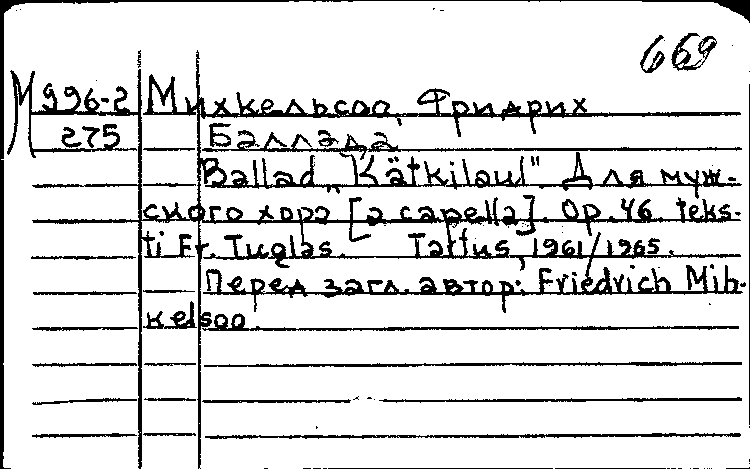 669
М 996-2 Михкельсоо, Фридрих
275 Баллада
Ballad „Kätkilaul". Для муж-
ского хора [a capella]. Op. 46. teks-
ti Fr. Tuglas. Tartus, 1961/1965.
Перед загл. автор: Friedrich Mih-
kelsoo.